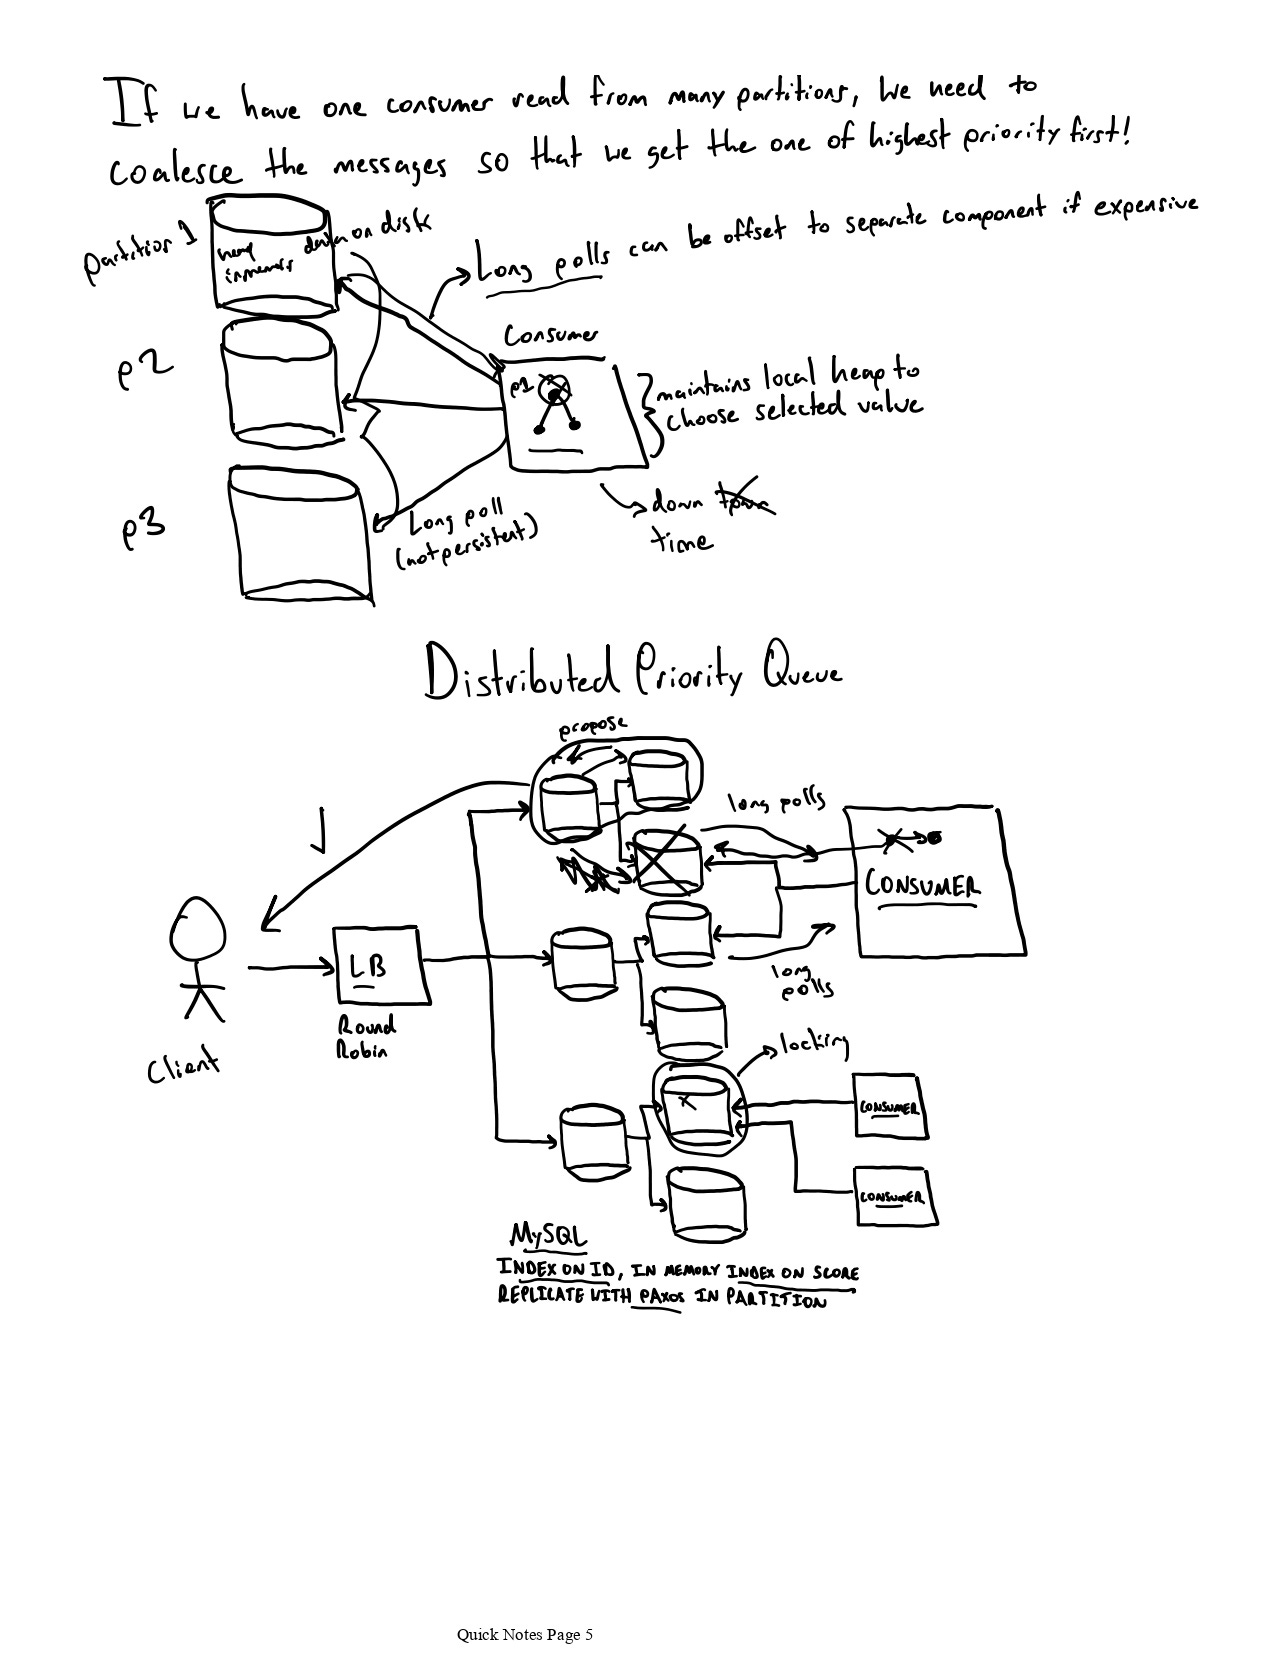 If we have one consumer read from many partitions, we need to
coalesce the messages so that we get the one of highest priority first!
partition 1
heap
in memory
data on disk
Long polls can be offset to separate component if expensive
Consumer
p2
p1
maintains local heap to
choose selected value
p3
Long poll
(not persistent)
down
time
Distributed Priority Queue
propose
long polls
CONSUMER
LB
long
polls
Round
Robin
locking
Client
CONSUMER
CONSUMER
MySQL
INDEX ON ID, IN MEMORY INDEX ON SCORE
REPLICATE WITH PAXOS IN PARTITION
Quick Notes Page 5